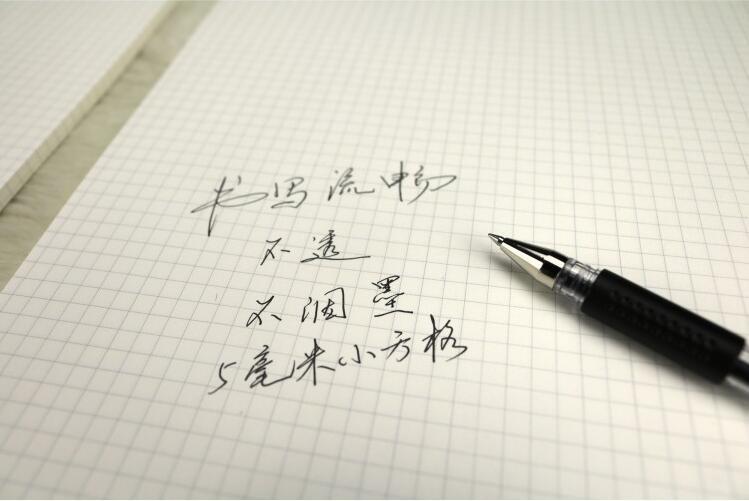 书写流畅
不透
不洇墨
5毫米小方格